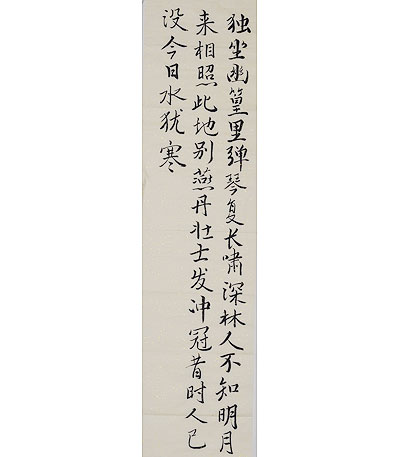 独坐幽篁里弹琴复长啸深林人不知明月
来相照此地别燕丹壮士发冲冠昔时人已
没今日水犹寒